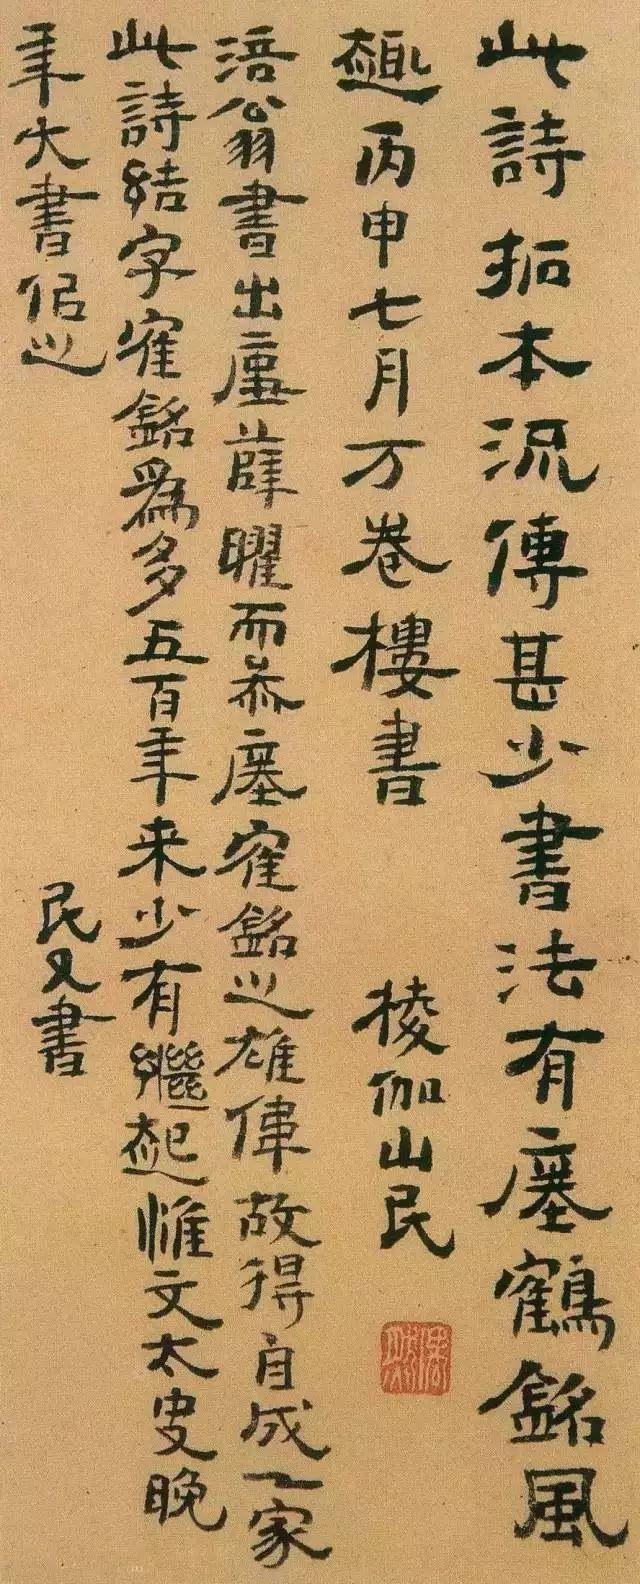 此詩拓本流傳甚少書法有瘞鶴銘風
趣丙申七月万卷樓書
棱伽山民
涪翁書出廛薛曜而叅瘞寉銘之雄偉故得自成一家
此詩結字寉銘爲多五百年来少有繼起惟文太史晚
年大書佀之
民又書